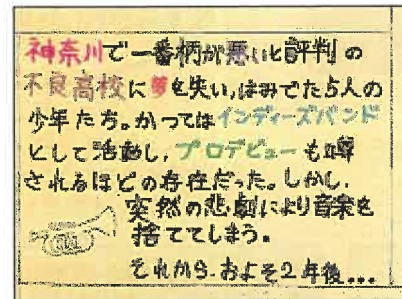 神奈川で一番柄が悪いと評判の
不良高校に夢を失い,はみでた5人の
少年たち。かつてはインディーズバンド
として活動し,プロデビューも噂
されるほどの存在だった。しかし,
突然の悲劇により音楽を
捨ててしまう。
それから、およそ2年後...